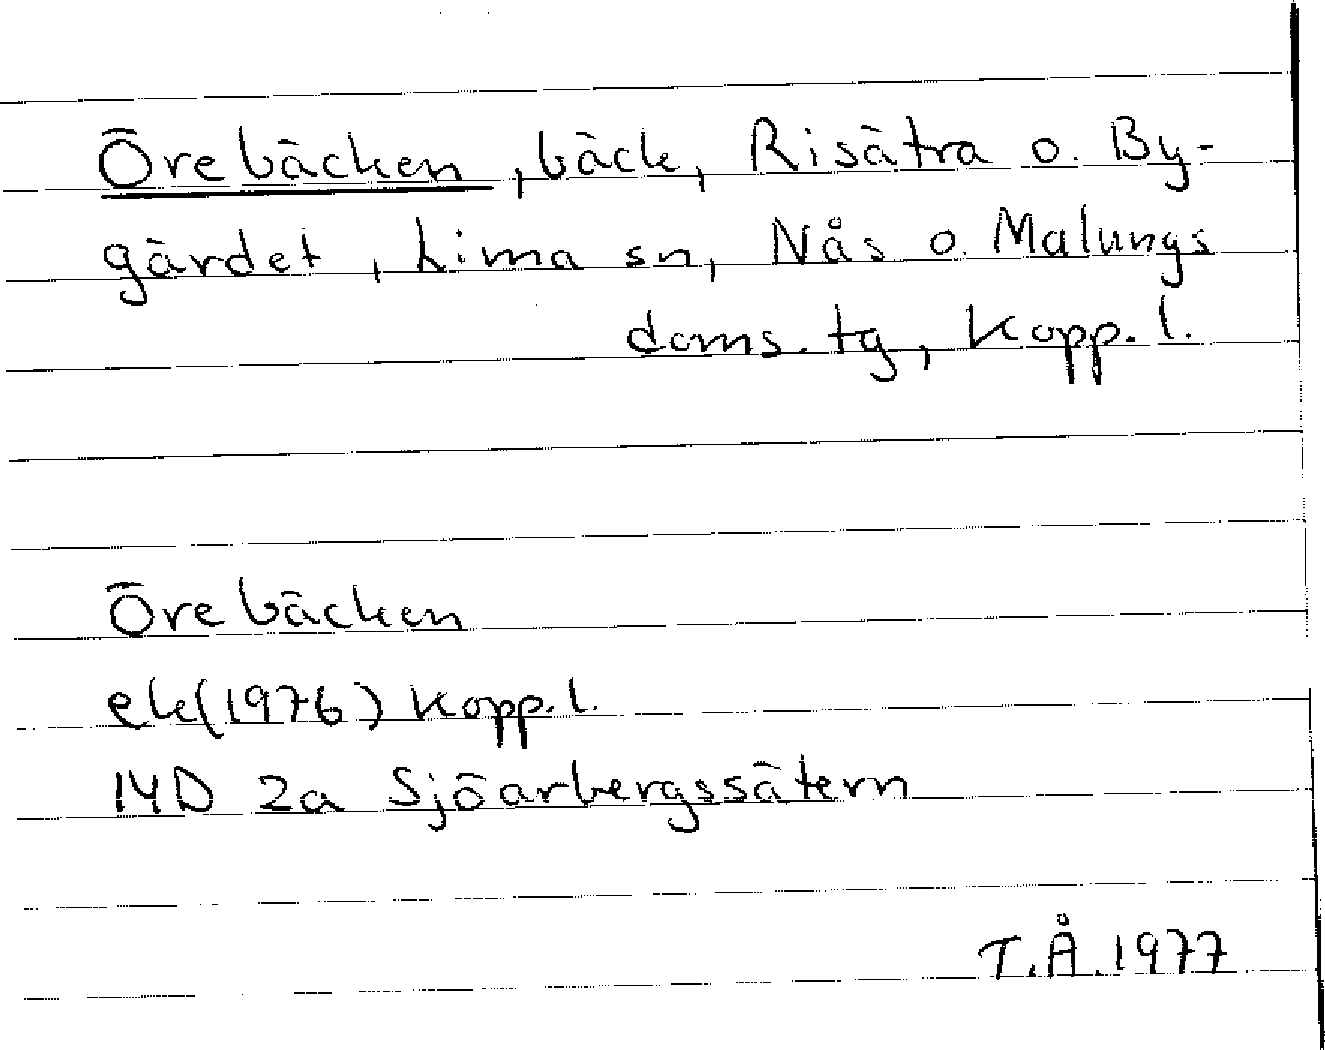 Örebäcken, bäck, Risätra o. By-
gärdet, Lima sn, Nås o. Malungs
doms. tg, Kopp. l.
Örebäcken
ek(1976) Kopp. l.
14D 2a Sjöarbergssätern
T.Å. 1977